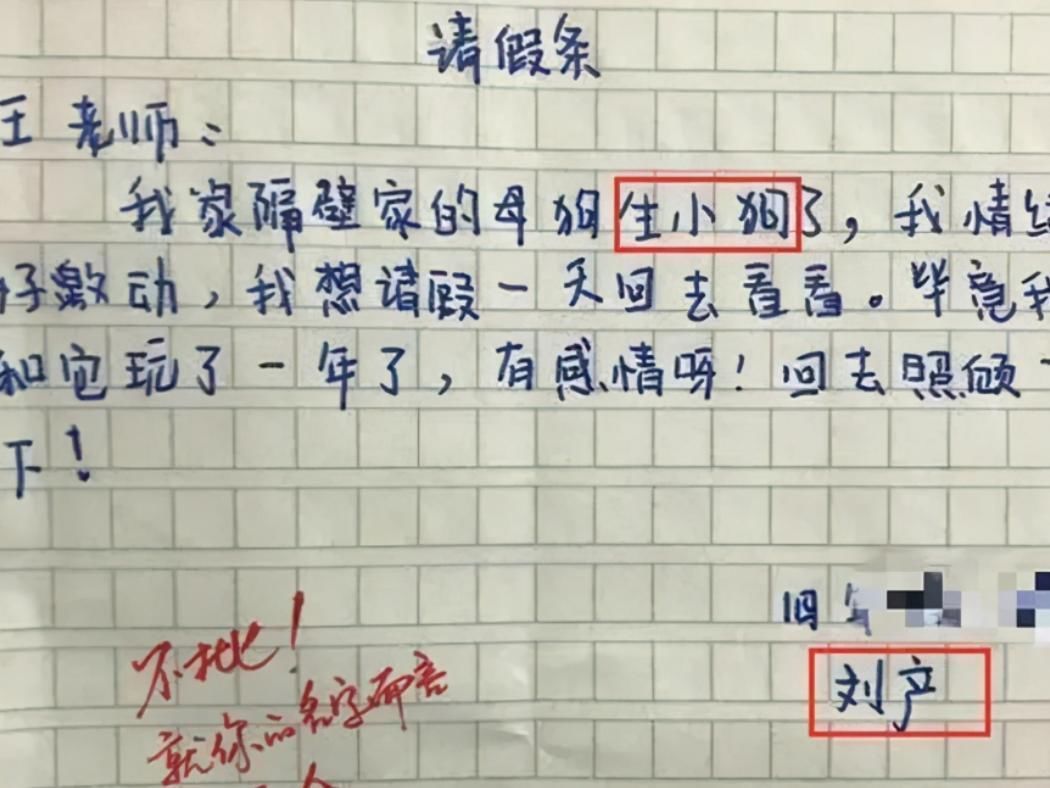 请假条
王老师：
我家隔壁家的母狗生小狗了，我情绪
好激动，我想请假一天回去看看。毕竟我
和它玩了一年了，有感情呀！回去照顾一
下！
四年
刘产
不批！
就你的名字而言
人